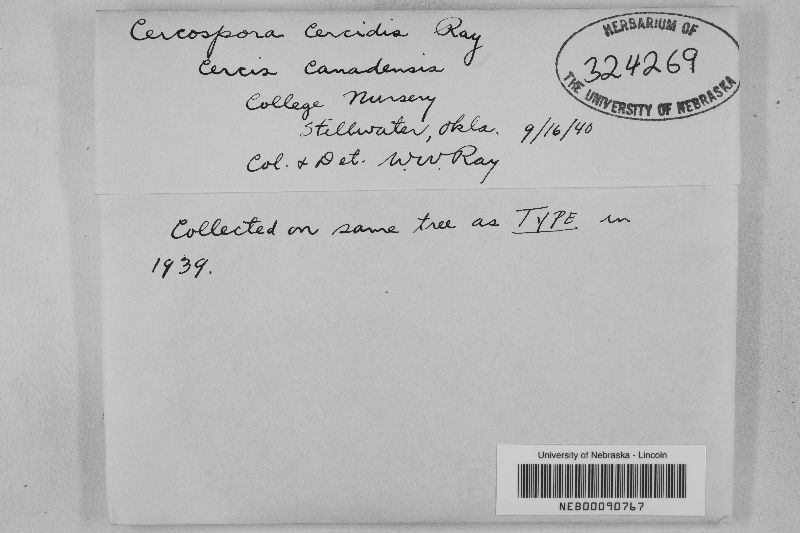 Cercospora Cercidis Ray
Cercis Canadensis
College Nursery
Stillwater, Okla. 9/16/40
Col. & Det. W.W. Ray
HERBARIUM OF
324269
THE UNIVERSITY OF NEBRASKA
Collected on same tree as TYPE in
1939.
University of Nebraska - Lincoln
NEB00090767